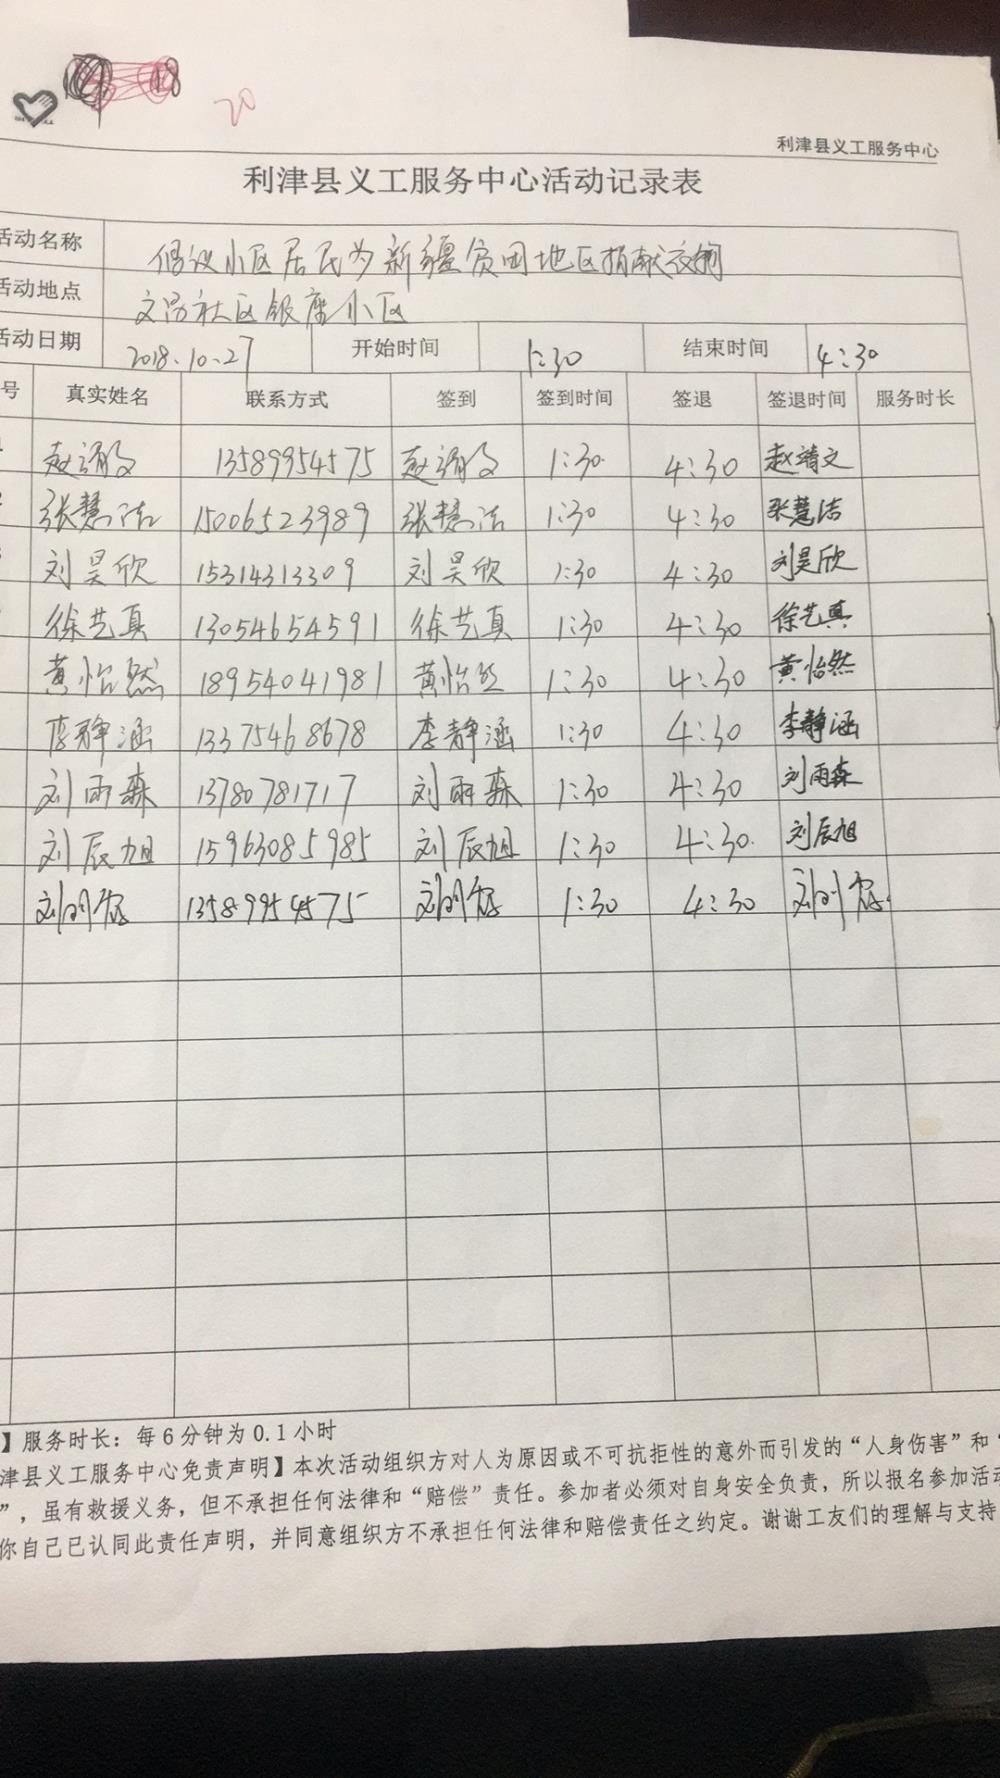 20
利津县义工服务中心
利津县义工服务中心活动记录表
活动名称 倡议小区居民为新疆贫困地区捐献衣物
活动地点 文昌社区银座小区
活动日期 2018.10.27 开始时间 1:30 结束时间 4:30
号 真实姓名 联系方式 签到 签到时间 签退 签退时间 服务时长
赵靖文 13589954575 赵靖文 1:30 4:30 赵靖文
张慧洁 15006523989 张慧洁 1:30 4:30 张慧洁
刘昊欣 15314313309 刘昊欣 1:30 4:30 刘昊欣
徐艺真 13054654591 徐艺真 1:30 4:30 徐艺真
黄怡然 18954041981 黄怡然 1:30 4:30 黄怡然
李静涵 13375468678 李静涵 1:30 4:30 李静涵
刘雨森 13780781717 刘雨森 1:30 4:30 刘雨森
刘辰旭 15963085985 刘辰旭 1:30 4:30 刘辰旭
刘 13589954575 刘 1:30 4:30 刘
】服务时长：每6分钟为0.1小时
津县义工服务中心免责声明】本次活动组织方对人为原因或不可抗拒性的意外而引发的“人身伤害”和“
”，虽有救援义务，但不承担任何法律和“赔偿”责任。参加者必须对自身安全负责，所以报名参加活动
你自己已认同此责任声明，并同意组织方不承担任何法律和赔偿责任之约定。谢谢工友们的理解与支持